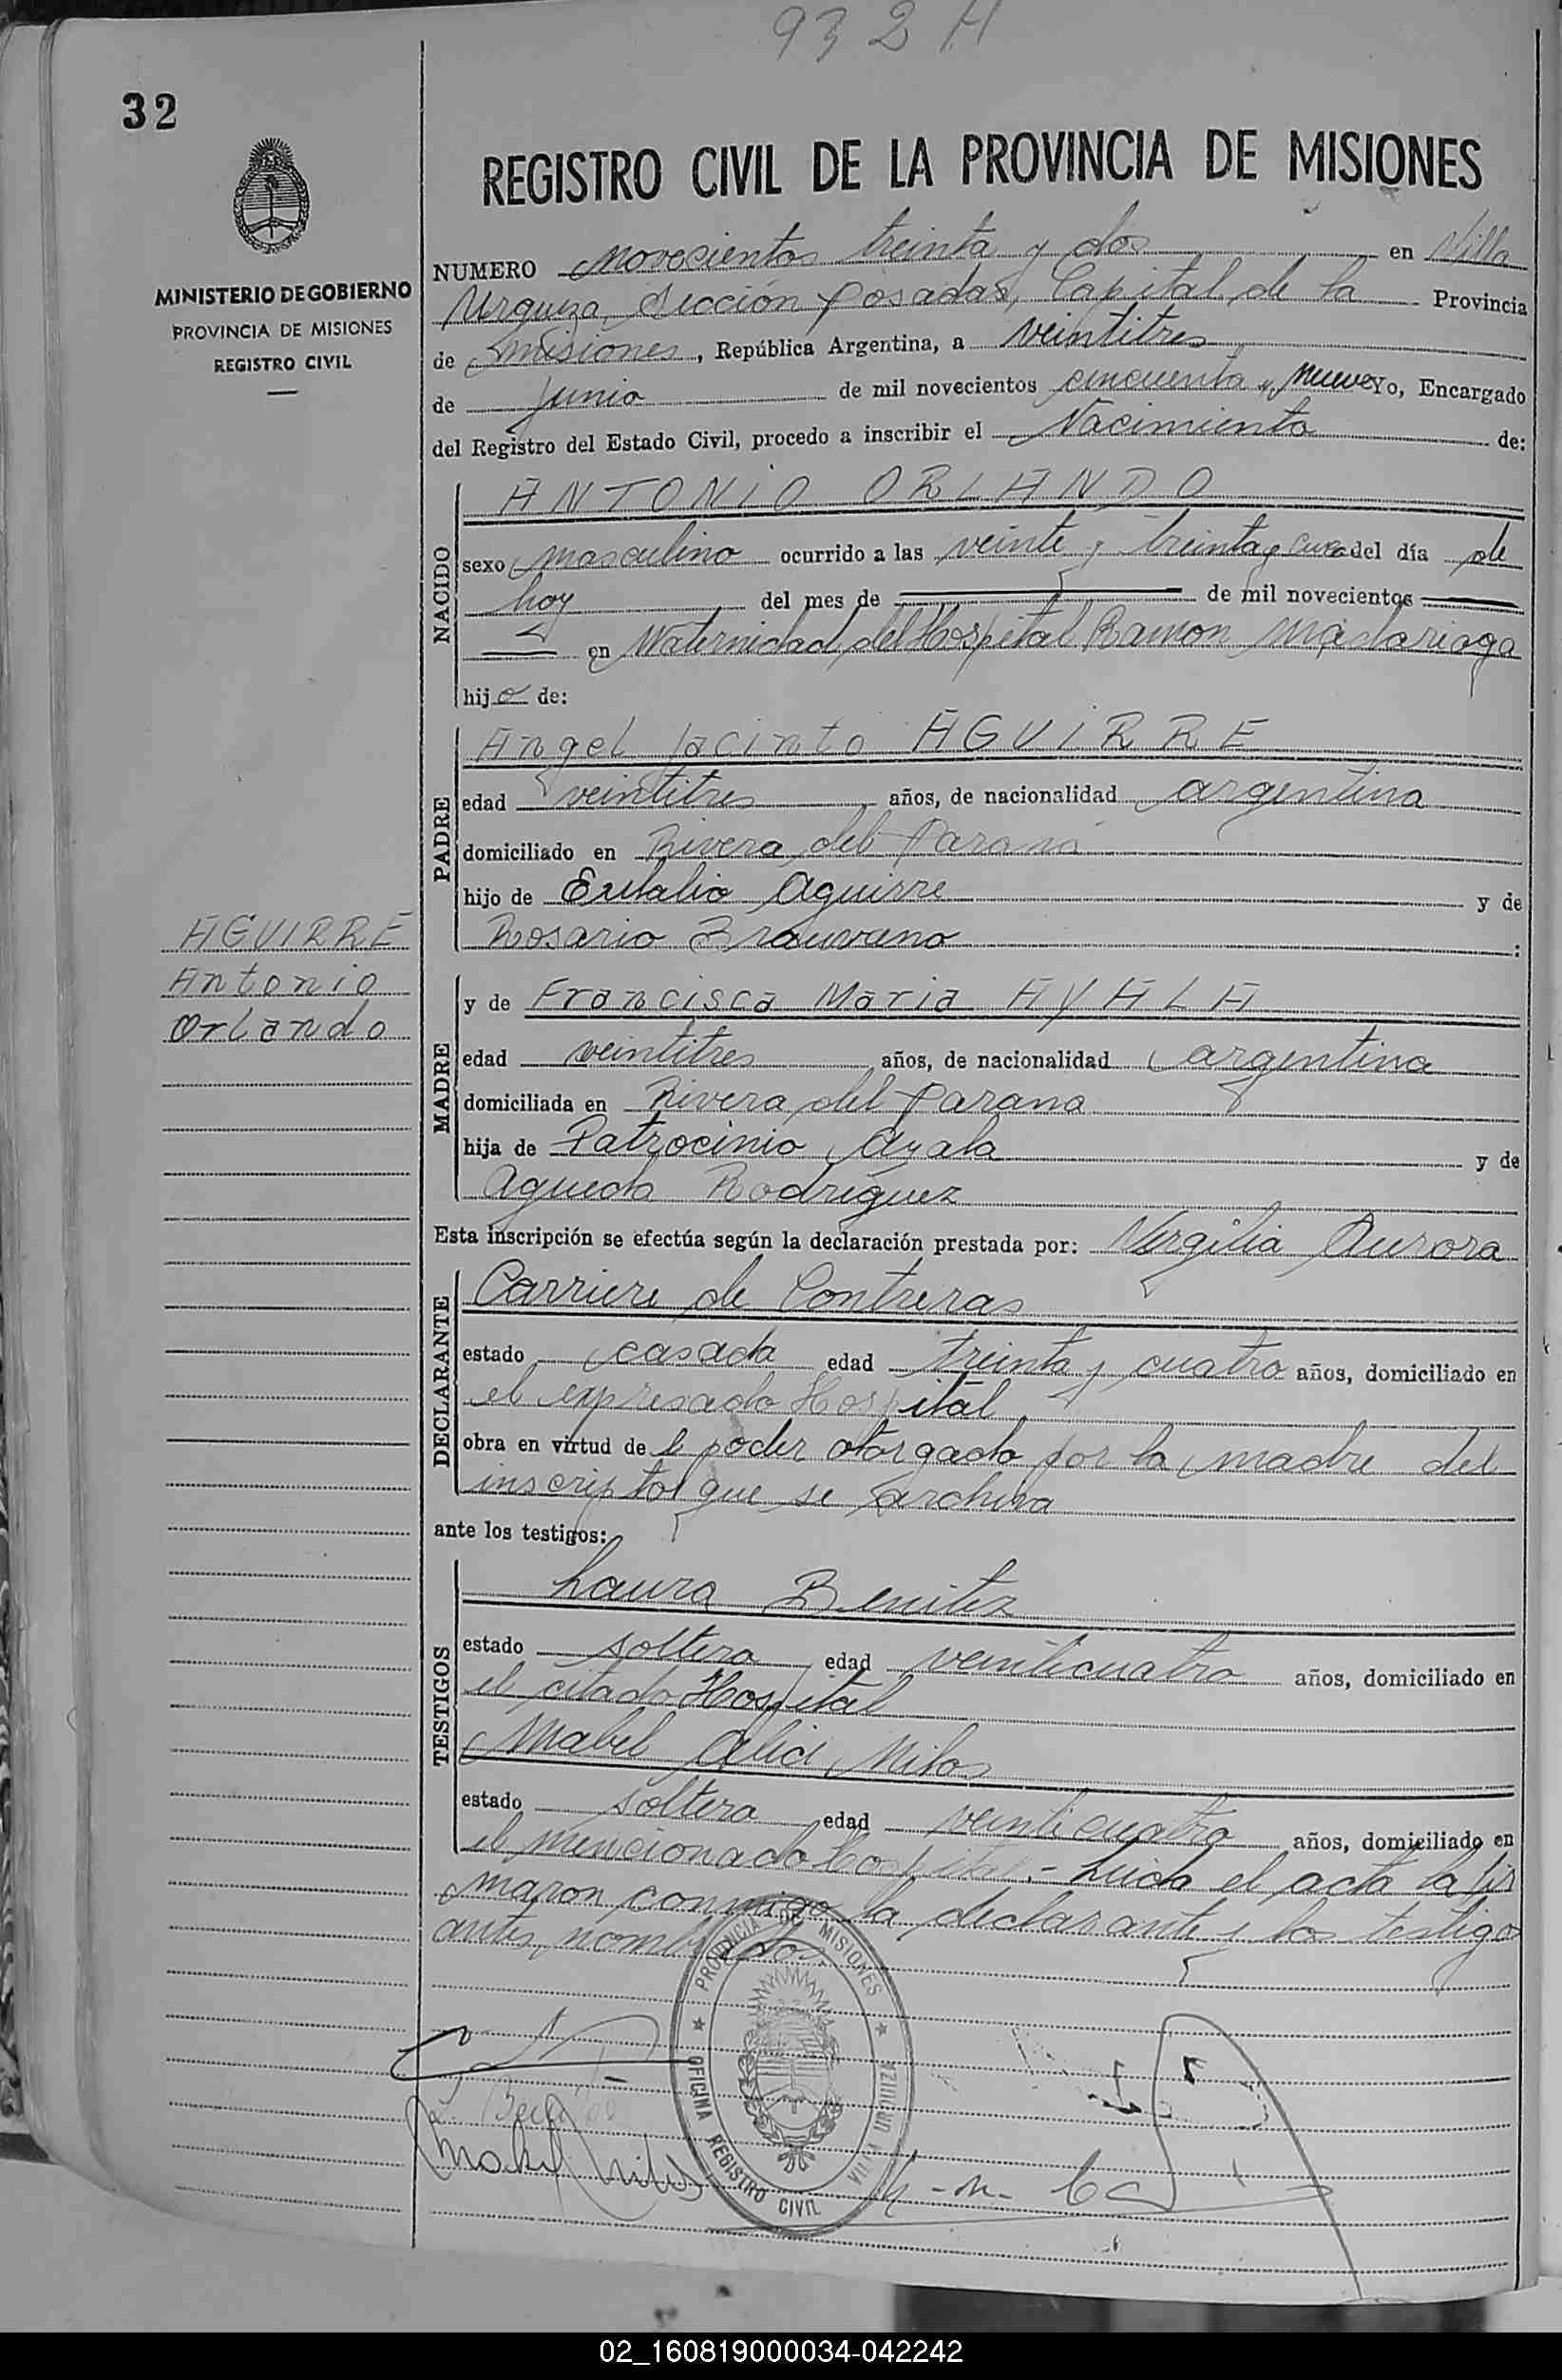 932 A
32
REGISTRO CIVIL DE LA PROVINCIA DE MISIONES
MINISTERIO DE GOBIERNO
PROVINCIA DE MISIONES
REGISTRO CIVIL
NUMERO novecientos treinta y dos en Villa
Urquiza, Sección Posadas, Capital de la Provincia
de Misiones, República Argentina, a veintitres
de junio de mil novecientos cincuenta y nueve Yo, Encargado
del Registro del Estado Civil, procedo a inscribir el Nacimiento de:
NACIDO
ANTONIO ORLANDO
sexo masculino ocurrido a las veinte y treinta y del día de
hoy del mes de de mil novecientos
en Maternidad del Hospital Ramon Madariaga
hijo de:
PADRE
Angel Jacinto AGUIRRE
edad veintitres años, de nacionalidad argentina
domiciliado en Rivera del Parana
hijo de Eulalio Aguirre y de
Rosario
AGUIRRE
Antonio
Orlando
MADRE
y de Francisca Maria AYALA
edad veintitres años, de nacionalidad argentina
domiciliada en Rivera del Parana
hija de Patrocinio Ayala y de
Agueda Rodriguez
Esta inscripción se efectúa según la declaración prestada por: Virgilia Aurora
DECLARANTE
Carriere de Contreras
estado casada edad treinta y cuatro años, domiciliado en
el expresado Hospital
obra en virtud de le poder otorgado por la madre del
inscripto que se archiva
ante los testigos:
TESTIGOS
Laura Benitez
estado soltera edad veinticuatro años, domiciliado en
el citado Hospital
Mabel Alici Milos
estado soltera edad veinticuatro años, domiciliado en
el mencionado Hospital.- Leida el acta la fir
maron conmigo la declarante y los testigos
antes nombrados
PROVINCIA DE MISIONES
OFICINA REGISTRO CIVIL VILLA URQUIZA
Mabel Milos
02_160819000034-042242